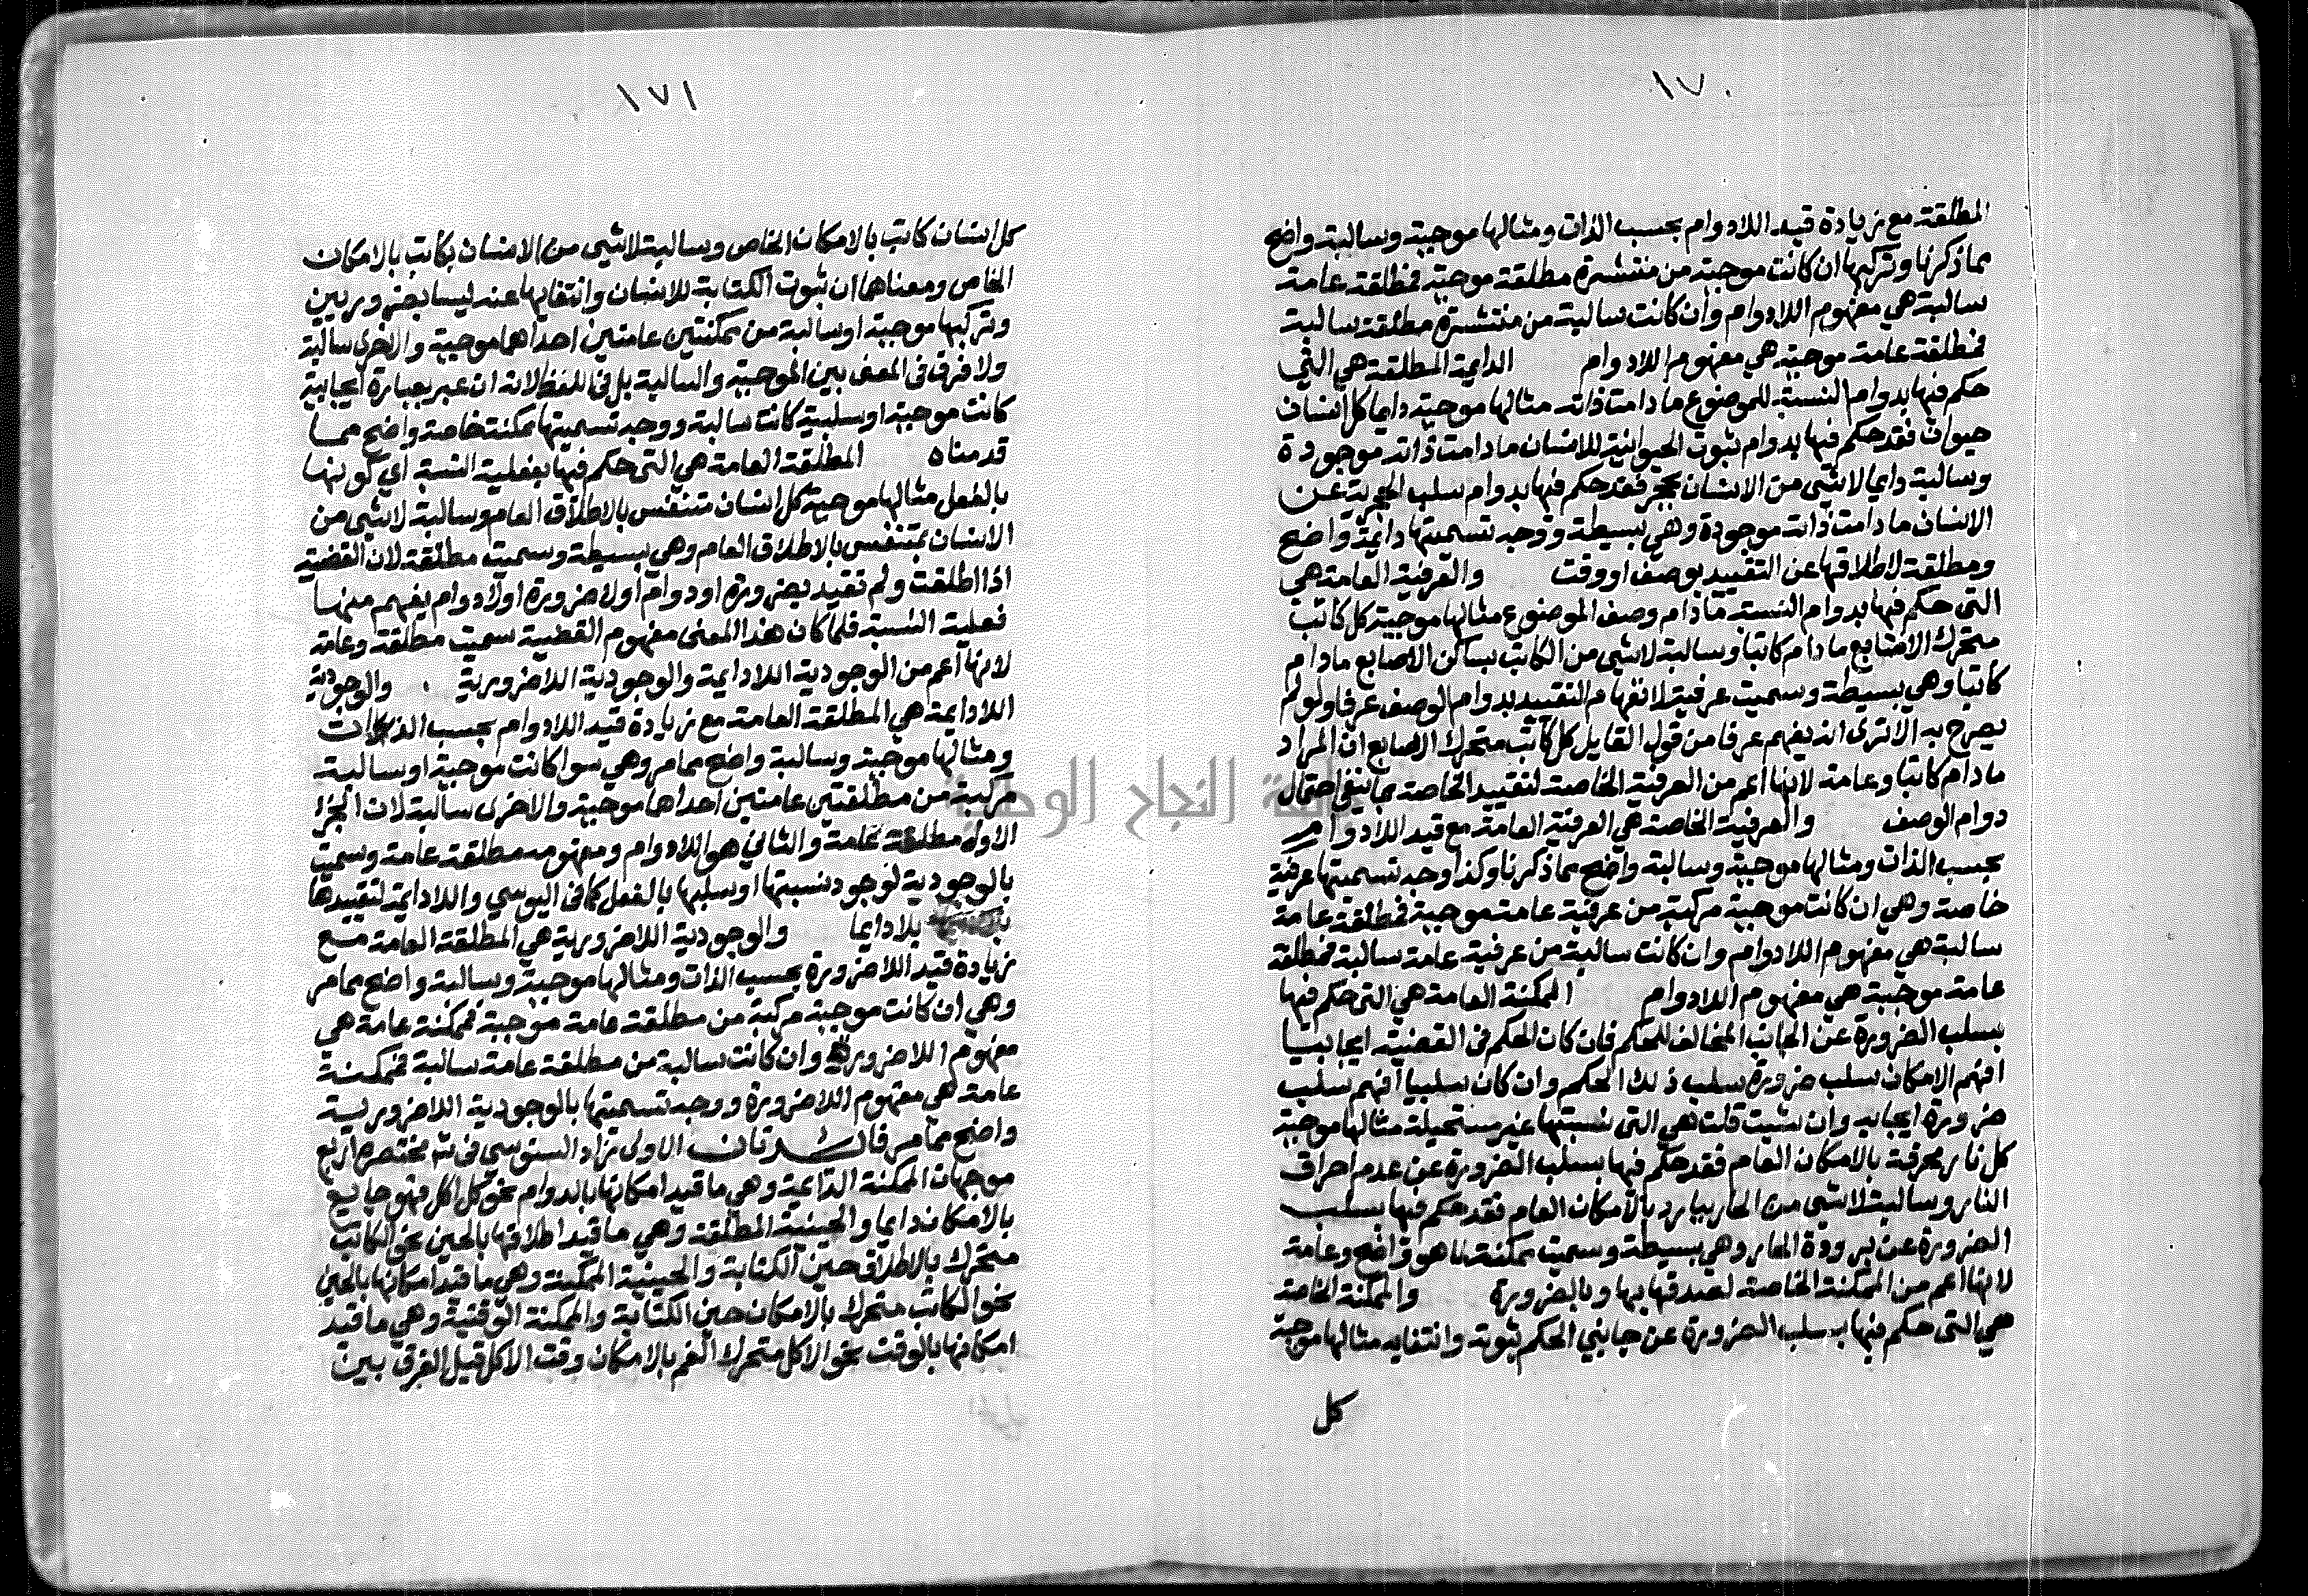 ١٧٠
المطلقة مع زيادة قيد اللادوام بحسب الذات ومثالها موجبة وسالبة واضح
مما ذكرنا وتركبها ان كانت موجبة من منتشرة مطلقة موجبة فمطلقة عامة
سالبة هي مفهوم اللادوام وان كانت سالبة من منتشرة مطلقة سالبة
فمطلقة عامة موجبة هي مفهوم اللادوام الدايمة المطلقة هي التي
حكم فيها بدوام النسبة للموضوع ما دامت ذاته مثالها موجبة دايما كل انسان
حيوان فقد حكم فيها بدوام ثبوت الحيوانية للانسان ما دامت ذاته موجودة
وسالبة دايما لا شي من الانسان بحجر فقد حكم فيها بدوام سلب الحجرية عن
الانسان ما دامت ذاته موجودة وهي بسيطة ووجه تسميتها دايمة واضح
ومطلقة لاطلاقها عن التقييد بوصف او وقت والعرفية العامة هي
التي حكم فيها بدوام النسبة ما دام وصف الموضوع مثالها موجبة كل كاتب
متحرك الاصابع ما دام كاتبا وسالبة لا شي من الكاتب بساكن الاصابع ما دام
كاتبا وهي بسيطة وسميت عرفية لانفهام التقييد بدوام الوصف عرفا ولو لم
يصرح به الا ترى انه يفهم عرفا من قول القايل كل كاتب متحرك الاصابع ان المراد
ما دام كاتبا وعامة لانها اعم من العرفية الخاصة لتقييد الخاصة بما ينفي احتمال
دوام الوصف والعرفية الخاصة هي العرفية العامة مع قيد اللادوام
بحسب الذات ومثالها موجبة وسالبة واضح مما ذكرنا وكذا وجه تسميتها عرفية
خاصة وهي ان كانت موجبة مركبة من عرفية عامة موجبة فمطلقة عامة
سالبة هي مفهوم اللادوام وان كانت سالبة من عرفية عامة سالبة فمطلقة
عامة موجبة هي مفهوم اللادوام الممكنة العامة هي التي حكم فيها
بسلب الضرورة عن الجانب المخالف للحكم فان كان الحكم في القضية ايجابيا
افهم الامكان سلب ضرورة سلب ذلك الحكم وان كان سلبيا افهم سلب
ضرورة ايجابه وان شيت قلت هي التي نسبتها غير مستحيلة مثالها موجبة
كل نار محرقة بالامكان العام فقد حكم فيها بسلب الضرورة عن عدم احراق
النار وسالبة لا شي من الحار ببارد بالامكان العام فقد حكم فيها بسلب
الضرورة عن برودة الحار وهي بسيطة وسميت ممكنة لما هو واضح وعامة
لانها اعم من الممكنة الخاصة لصدقها بها وبالضرورة والممكنة الخاصة
هي التي حكم فيها بسلب الضرورة عن جانبي الحكم ثبوته وانتفايه مثالها موجبة
كل
١٧١
كل انسان كاتب بالامكان الخاص وسالبة لا شي من الانسان بكاتب بالامكان
الخاص ومعناهما ان ثبوت الكتابة للانسان وانتفايها عنه ليسا بضروريين
وتركبها موجبة او سالبة من ممكنتين عامتين احداهما موجبة والاخرى سالبة
ولا فرق في المعنى بين الموجبة والسالبة بل في اللفظ لانه ان عبر بعبارة ايجابية
كانت موجبة او سلبية كانت سالبة ووجه تسميتها ممكنة خاصة واضح مما
قدمناه المطلقة العامة هي التي حكم فيها بفعلية النسبة اي كونها
بالفعل مثالها موجبة كل انسان متنفس بالاطلاق العام وسالبة لا شي من
الانسان بمتنفس بالاطلاق العام وهي بسيطة وسميت مطلقة لان القضية
اذا اطلقت ولم تقيد بضرورة او دوام او لا ضرورة او لا دوام يفهم منها
فعلية النسبة فلما كان هذا المعنى مفهوم القضية سميت مطلقة وعامة
لانها اعم من الوجودية اللادايمة والوجودية اللاضرورية والوجودية
اللادايمة هي المطلقة العامة مع زيادة قيد اللادوام بحسب الذات
ومثالها موجبة وسالبة واضح مما مر وهي سوا كانت موجبة او سالبة
مركبة من مطلقتين عامتين احداهما موجبة والاخرى سالبة لان الجزا
الاول مطلقة عامة والثاني هو اللادوام ومفهومه مطلقة عامة وسميت
بالوجودية لوجود نسبتها او سلبها بالفعل كما في اليوسي واللادايمة لتقييدها
بلا دايما والوجودية اللاضرورية هي المطلقة العامة مع
زيادة قيد اللاضرورة بحسب الذات ومثالها موجبة وسالبة واضح مما مر
وهي ان كانت موجبة مركبة من مطلقة عامة موجبة فممكنة عامة هي
مفهوم اللاضرورة وان كانت سالبة من مطلقة عامة سالبة فممكنة
عامة هي مفهوم اللاضرورة ووجه تسميتها بالوجودية اللاضرورية
واضح مما مر الاولى زاد السنوسي في مختصره اربع
موجهات الممكنة الدايمة وهي ما قيد امكانها بالدوام نحو كل اكل فهو جايع
بالامكان دايما والحينية المطلقة وهي ما قيد اطلاقها بالحين نحو الكاتب
متحرك بالاطلاق حين الكتابة والحينية الممكنة وهي ما قيد امكانها بالحين
نحو الكاتب متحرك بالامكان حين الكتابة والممكنة الوقتية وهي ما قيد
امكانها بالوقت نحو الاكل متحرك الفم بالامكان وقت الاكل قيل الفرق بين
جامعة النجاح الوطنية